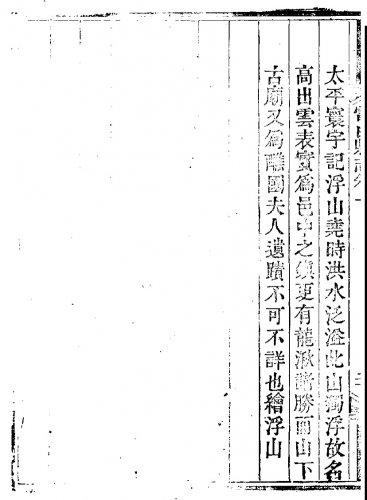 太平寰宇記浮山堯時洪水泛溢此山獨浮故名
高出雲表實為邑中之鎮更有龍湫諸勝而山下
古廟又為雕國夫人遺蹟不可不詳也繪浮山